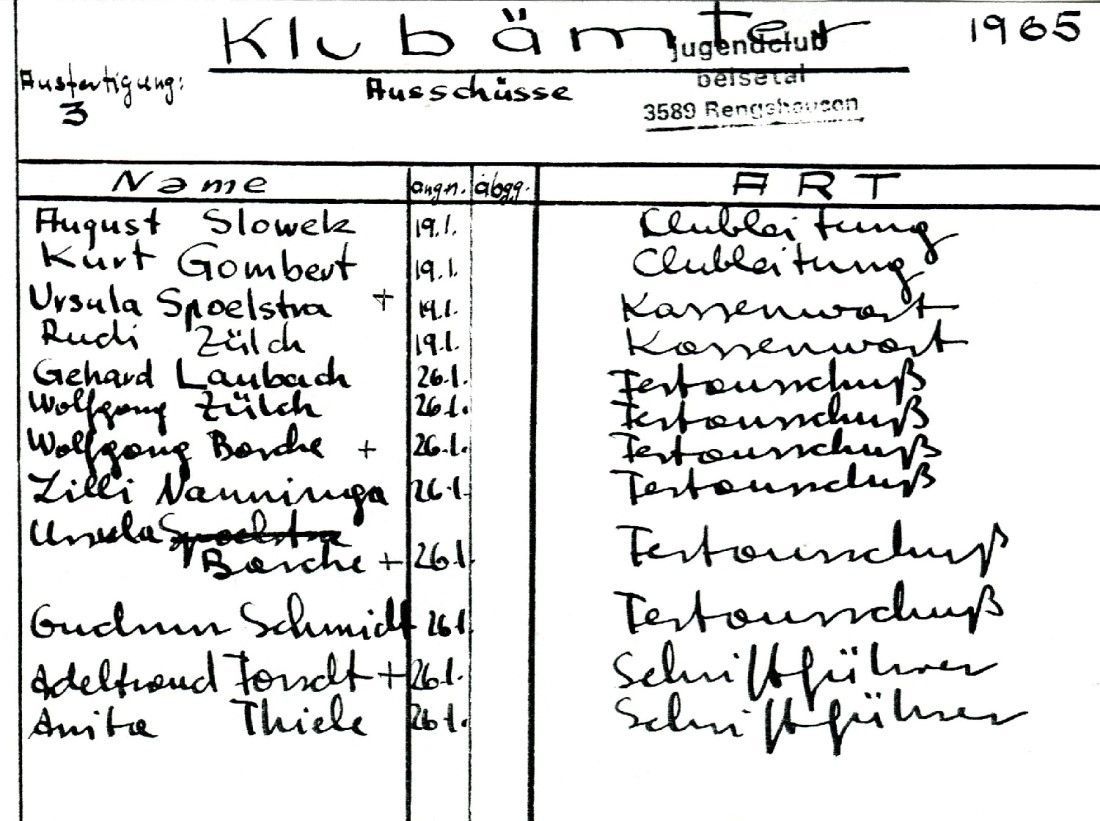 Klubämter 1965
jugendclub
beisetal
3589 Rengshausen
Ausfertigung:
3
Ausschüsse
Name angn. abgg. ART
August Slowek 19.1. Clubleitung
Kurt Gombert 19.1. Clubleitung
Ursula Spoelstra + 19.1. Kassenwart
Rudi Zülch 19.1. Kassenwart
Gehard Laubach 26.1. Festausschuß
Wolfgang Zülch 26.1. Festausschuß
Wolfgang Borche + 26.1. Festausschuß
Zilli Nanninga 26.1. Festausschuß
Ursula Spoelstra
Borche + 26.1. Festausschuß
Gudrun Schmidt 26.1. Festausschuß
Adeltraud + 26.1. Schriftführer
Anita Thiele 26.1. Schriftführer